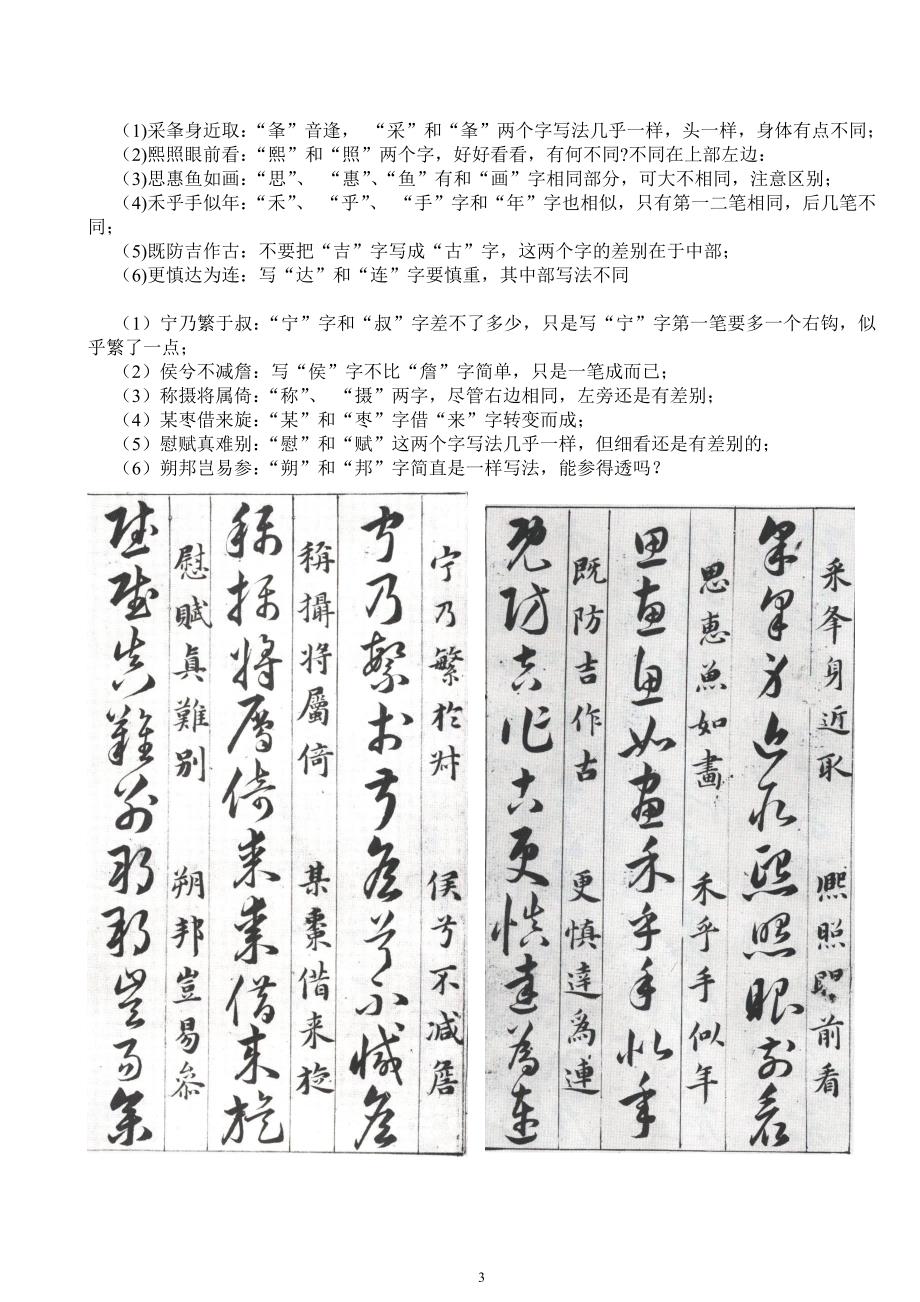 （1)采夆身近取：“夆”音逢， “采”和“夆”两个字写法几乎一样，头一样，身体有点不同；
（2)熙照眼前看：“熙”和“照”两个字，好好看看，有何不同?不同在上部左边：
（3)思惠鱼如画：“思”、 “惠”、“鱼”有和“画”字相同部分，可大不相同，注意区别；
（4)禾乎手似年：“禾”、 “乎”、 “手”字和“年”字也相似，只有第一二笔相同，后几笔不
同；
（5)既防吉作古：不要把“吉”字写成“古”字，这两个字的差别在于中部；
（6)更慎达为连：写“达”和“连”字要慎重，其中部写法不同
（1）宁乃繁于叔：“宁”字和“叔”字差不了多少，只是写“宁”字第一笔要多一个右钩，似
乎繁了一点；
（2）侯兮不减詹：写“侯”字不比“詹”字简单，只是一笔成而已；
（3）称摄将属倚：“称”、 “摄”两字，尽管右边相同，左旁还是有差别；
（4）某枣借来旋：“某”和“枣”字借“来”字转变而成；
（5）慰赋真难别：“慰”和“赋”这两个字写法几乎一样，但细看还是有差别的；
（6）朔邦岂易参：“朔”和“邦”字简直是一样写法，能参得透吗？
采夆身近取 熙照眼前看
思惠魚如畫 禾乎手似年
既防吉作古 更慎達為連
宁乃繁於 侯兮不减詹
稱攝將屬倚 某棗借来旋
慰賦真難别 朔邦豈易參
3